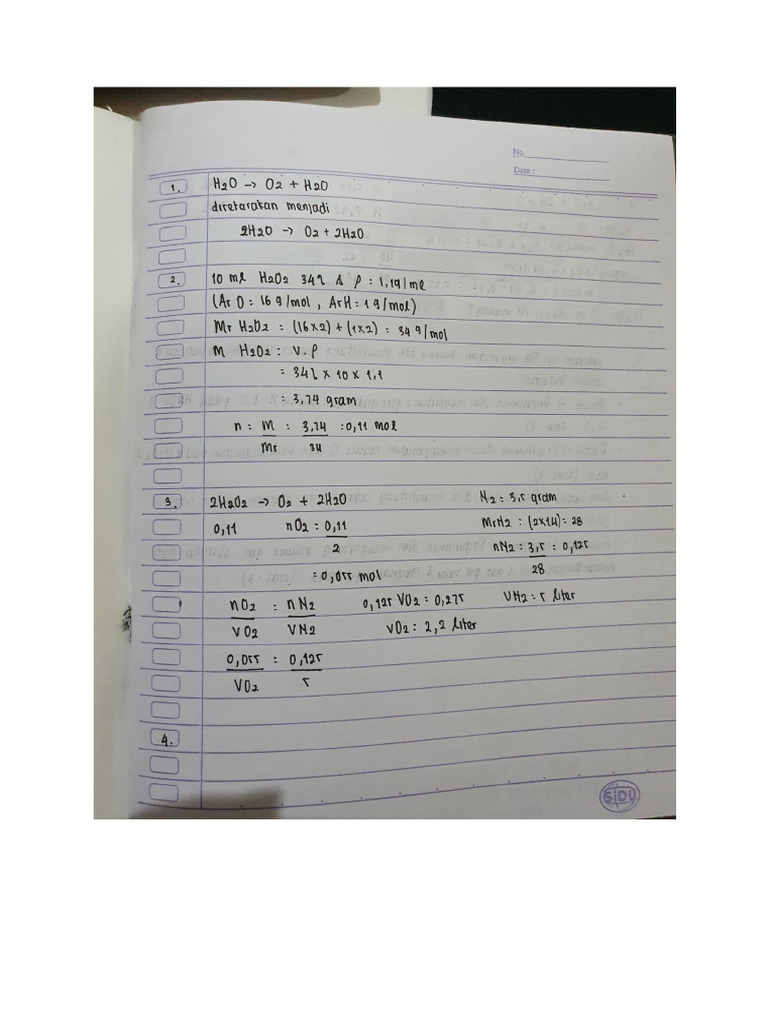 No.
Date :
1. H2O → O2 + H2O
disetarakan menjadi
2H2O → O2 + 2H2O
2. 10 ml H2O2 34% & ρ = 1,1g/ml
(Ar O = 16 g/mol , Ar H = 1 g/mol)
Mr H2O2 = (16x2) + (1x2) = 34 g/mol
M H2O2 = V.ρ
= 34% x 10 x 1,1
= 3,74 gram
n = M = 3,74 = 0,11 mol
Mr 34
3. 2H2O2 → O2 + 2H2O N2 = 3,5 gram
0,11 nO2 = 0,11 MrN2 : (2x14) = 28
2 nN2 = 3,5 = 0,125
= 0,055 mol 28
nO2 = nN2 0,125 VO2 = 0,275 VN2 = 5 liter
VO2 VN2 VO2 = 2,2 liter
0,055 = 0,125
VO2 5
4.
SiDU